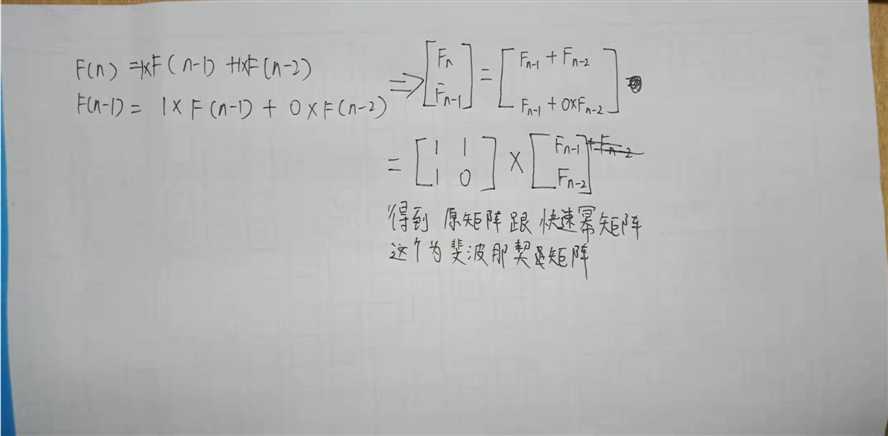 F(n) = 1×F(n-1) + 1×F(n-2)
F(n-1) = 1 × F(n-1) + 0 × F(n-2)
⇒ [Fn Fn-1] = [Fn-1 + Fn-2 Fn-1 + 0×Fn-2]
= [1 1 1 0] × [Fn-1 Fn-2]
得到 原矩阵 跟 快速幂矩阵
这个为斐波那契矩阵